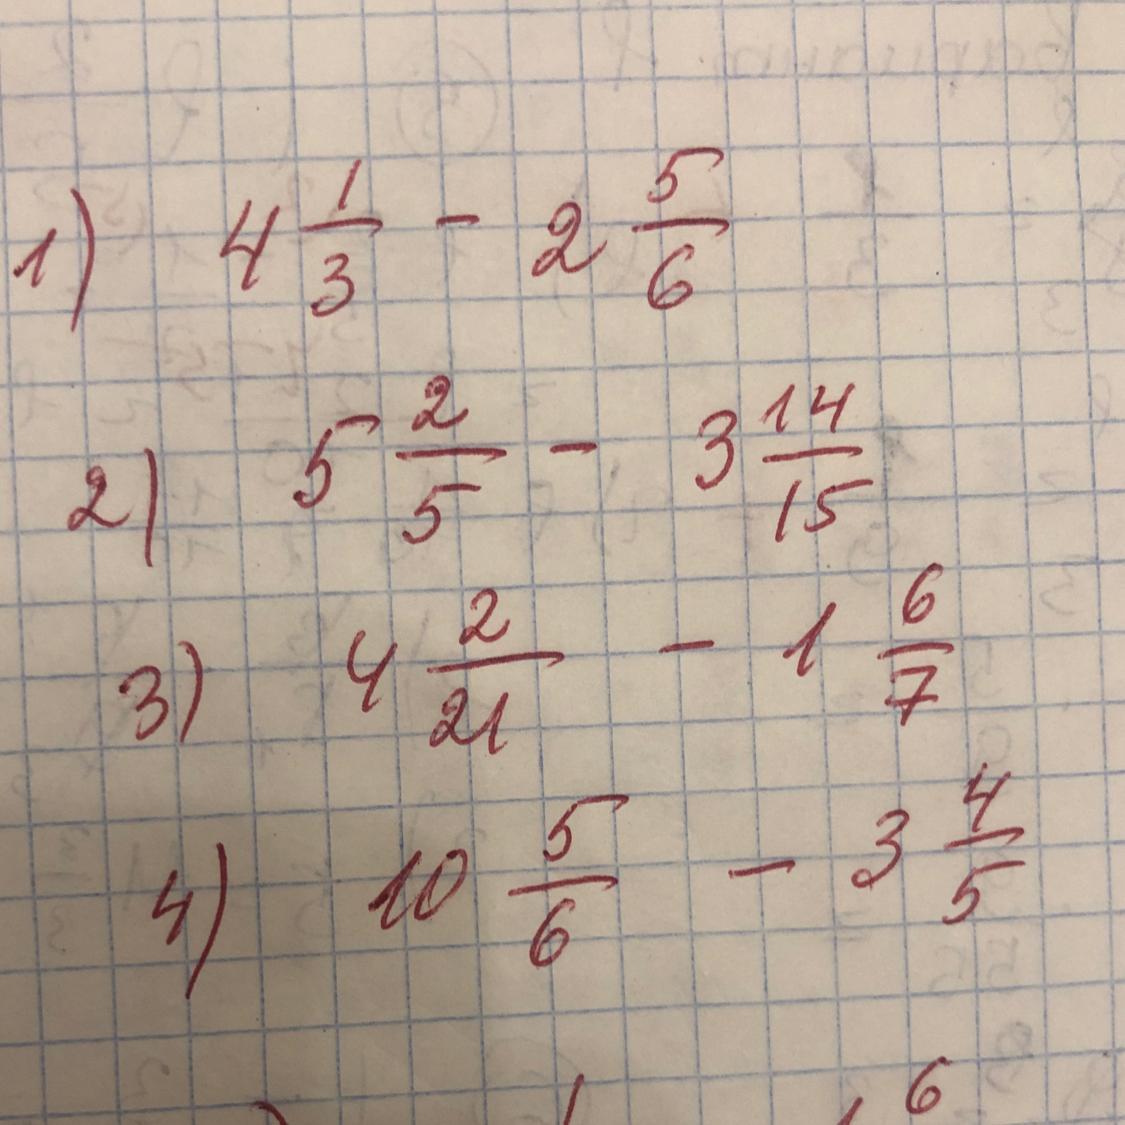 1) 4 1/3 - 2 5/6
2) 5 2/5 - 3 14/15
3) 4 2/21 - 1 6/7
4) 10 5/6 - 3 4/5